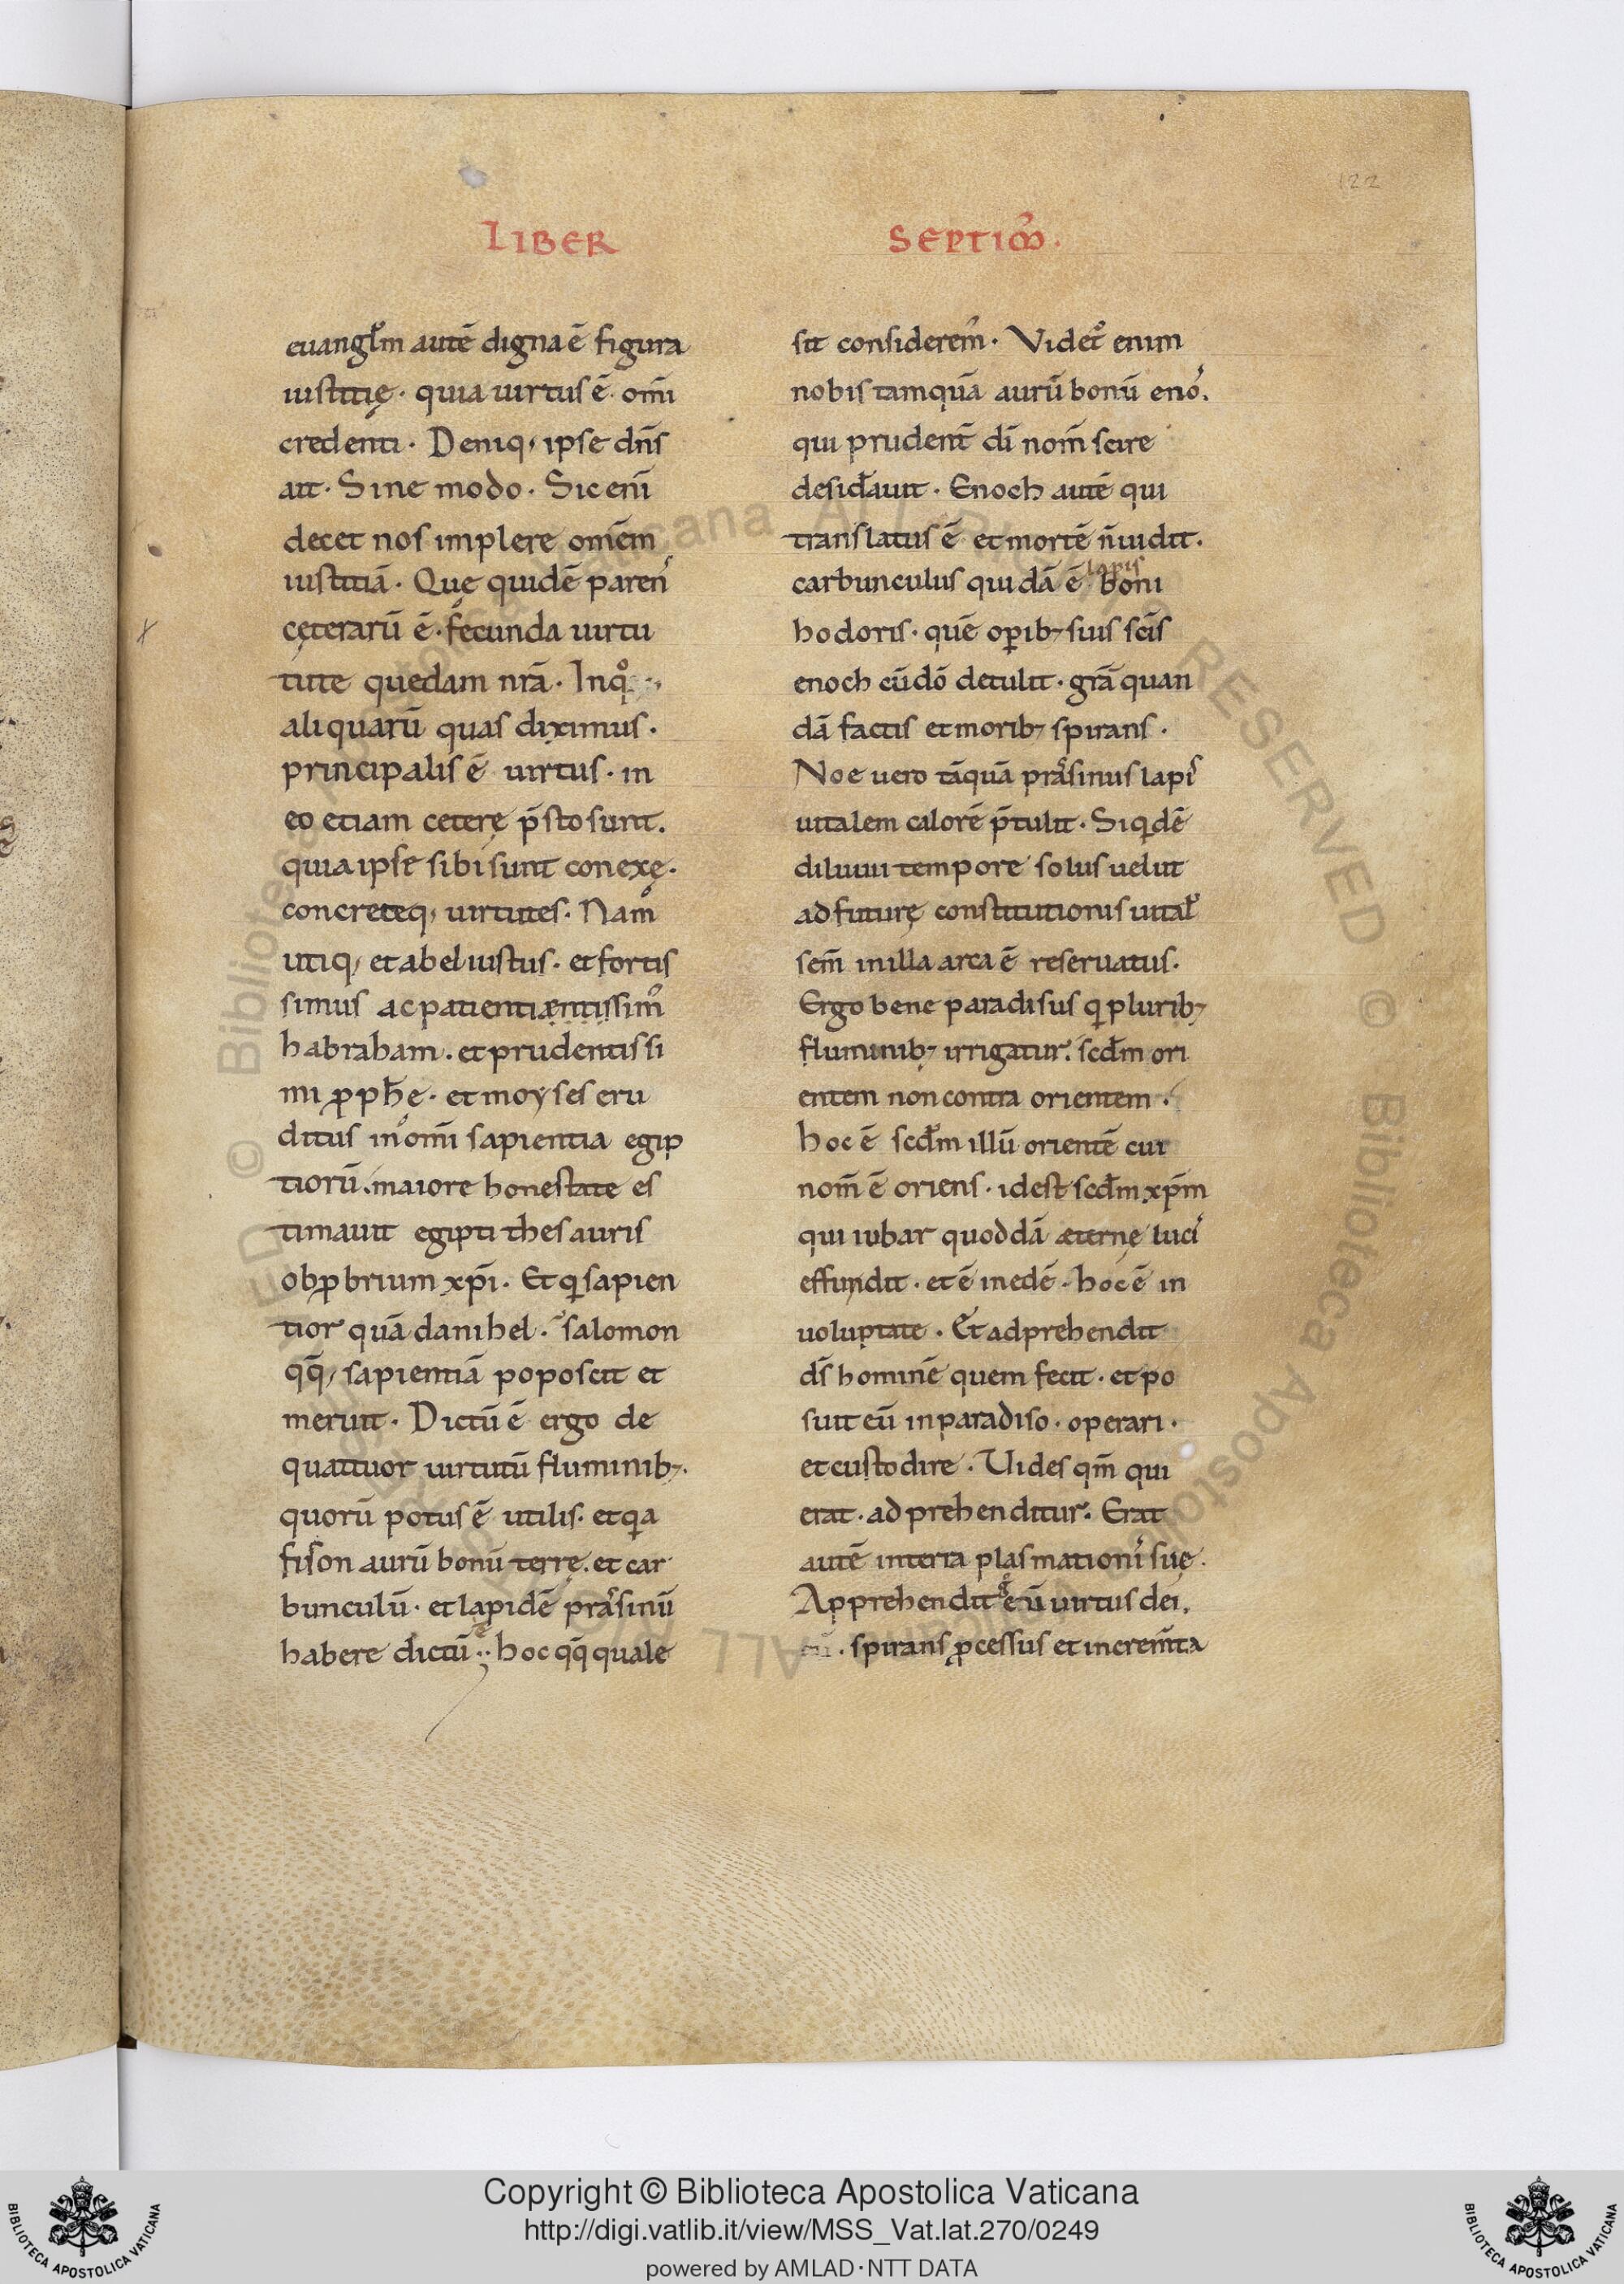 122
LIBER SEPTIM᷒.
euangł̄m autē digna ē figura
iustitię · quia uirtus ē · om̄i
credenti · Deniq; ipse dn̄s
ait · Sine modo · Sic eni̅
decet nos implere omēm
iustitiā · Que quidē paren᷒
cęterarū ē · fęcunda uirtu
tute quedam nrā · Inq̊
aliquarū quas diximus ·
principalis ē uirtus · in
eo etiam ceterę p̄sto sunt.
quia ipse sibi sunt conexę ·
concreteq; uirtutes · Nam
utiq; et abel iustus · et fortis
simus ac patientiæntissim᷒
habraham . et prudentissi
mi ꝓpħe · et moyses eru
ditus in om̄i sapientia egip
tiorū . maiore honestate es
timauit egipti thesauris
obꝓbrium xp̄i · Et q sapien
tior quā danihel · salomon
qq̄; sapientiā poposcit et
meruit · Dictū ē ergo de
quattuor uirtutū fluminib;
quorū potus ē utilis · et qa
fison aurū bonū terrę . et car
bunculū · et lapidē prasinū
habere dictū ·· hoc qq̄ quale
sit considerem᷒ · Videt᷒ enim
nobis tamquā aurū bonū eno᷒.
qui prudent̄ di̅ nom̄ scire
desid̄auit · Enoch autē qui
translatus ē et mortē n̄ uidit ·
lapis
carbunculus quidā ē boni
hodoris · quē oꝑib; suis sc̄s
enoch cūdō detulit · grā quan
dā factis et morib; spirans ·
Noe uero tāquā prasinus lapi᷒
uitalem calorē p̄tulit · Siqdē
diluuii tempore solus uelut
ad futurę constitutionis uital᷒
sem̄ in illa arca ē reseruatus ·
Ergo bene paradisus q plurib;
fluminib; irrigatur . scd̄m ori
entem non contra orientem ·
hoc ē scd̄m illū orientē cui
nom̄ ē oriens · idest scd̄m xp̄m
qui iubar quoddā æternę luci᷒
effundit · et ē in edē · hoc ē in
uoluptate · Et adprehendit
ds̄ hominē quem fecit · et po
suit eū in paradiso · operari ·
et custodire · Uides qm̄ qui
erat · adprehenditur · Erat
autē in terra plasmationi᷒ suę ·
Apprehendit g̊ eū uirtus dei,
· spirans ꝓcessus et incrēmta
Copyright © Biblioteca Apostolica Vaticana
http://digi.vatlib.it/view/MSS_Vat.lat.270/0249
powered by AMLAD·NTT DATA
BIBLIOTECA APOSTOLICA VATICANA
BIBLIOTECA APOSTOLICA VATICANA